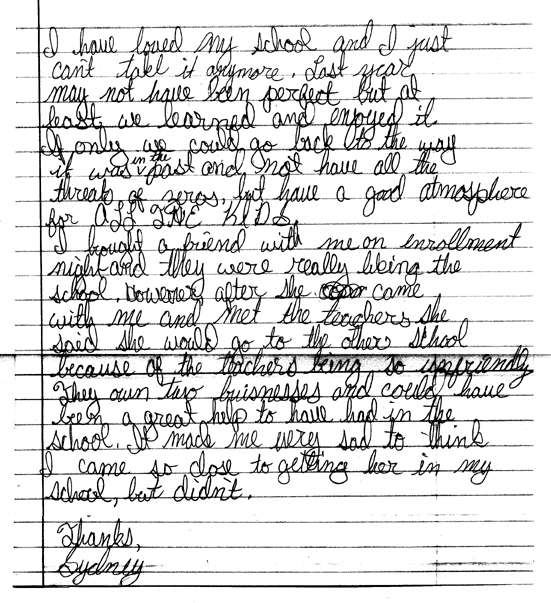 I have loved my school and I just
can't take it anymore. Last year
may not have been perfect but at
least we learned and enjoyed it.
If only we could go back to the way
it was in the past and not have all the
threats of zeros, but have a good atmosphere
for ALL THE KIDS.
I brought a friend with me on enrollment
night and they were really liking the
school. However after she came
with me and met the teachers she
said she would go to the other school
because of the teachers being so unfriendly
They own two buisnesses and could have
been a great help to have had in the
school. It made me very sad to think
I came so close to getting her in my
school, but didn't.
Thanks,
Sydney